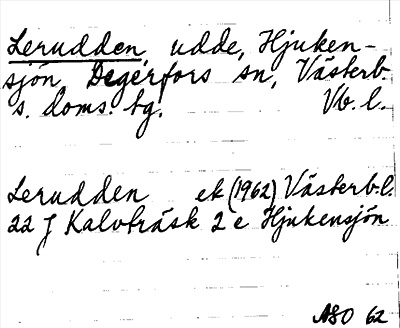 Lerudden, udde, Hjuken-
sjön, Degerfors sn, Västerb.
s. doms. tg. Vb. l.
Lerudden ek (1962) Västerb.l.
22 J Kalvträsk 2 e Hjukensjön
ASO 62